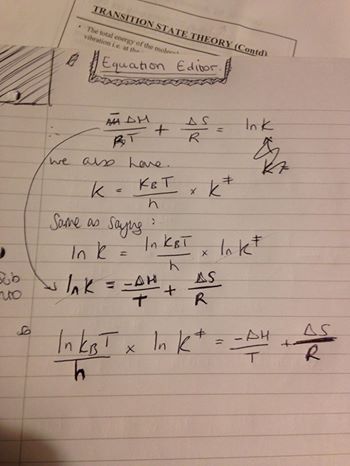 TRANSITION STATE THEORY (Contd)
• The total energy of the molec
vibration i.e. at the
Equation Editor.
∴ -ΔH/RT + ΔS/R = ln K
K‡
we also have.
k = K_BT/h × K‡
Same as saying:
ln k = ln K_BT/h × ln K‡
ln K = -ΔH/T + ΔS/R
so ln K_BT/h × ln K‡ = -ΔH/T + ΔS/R